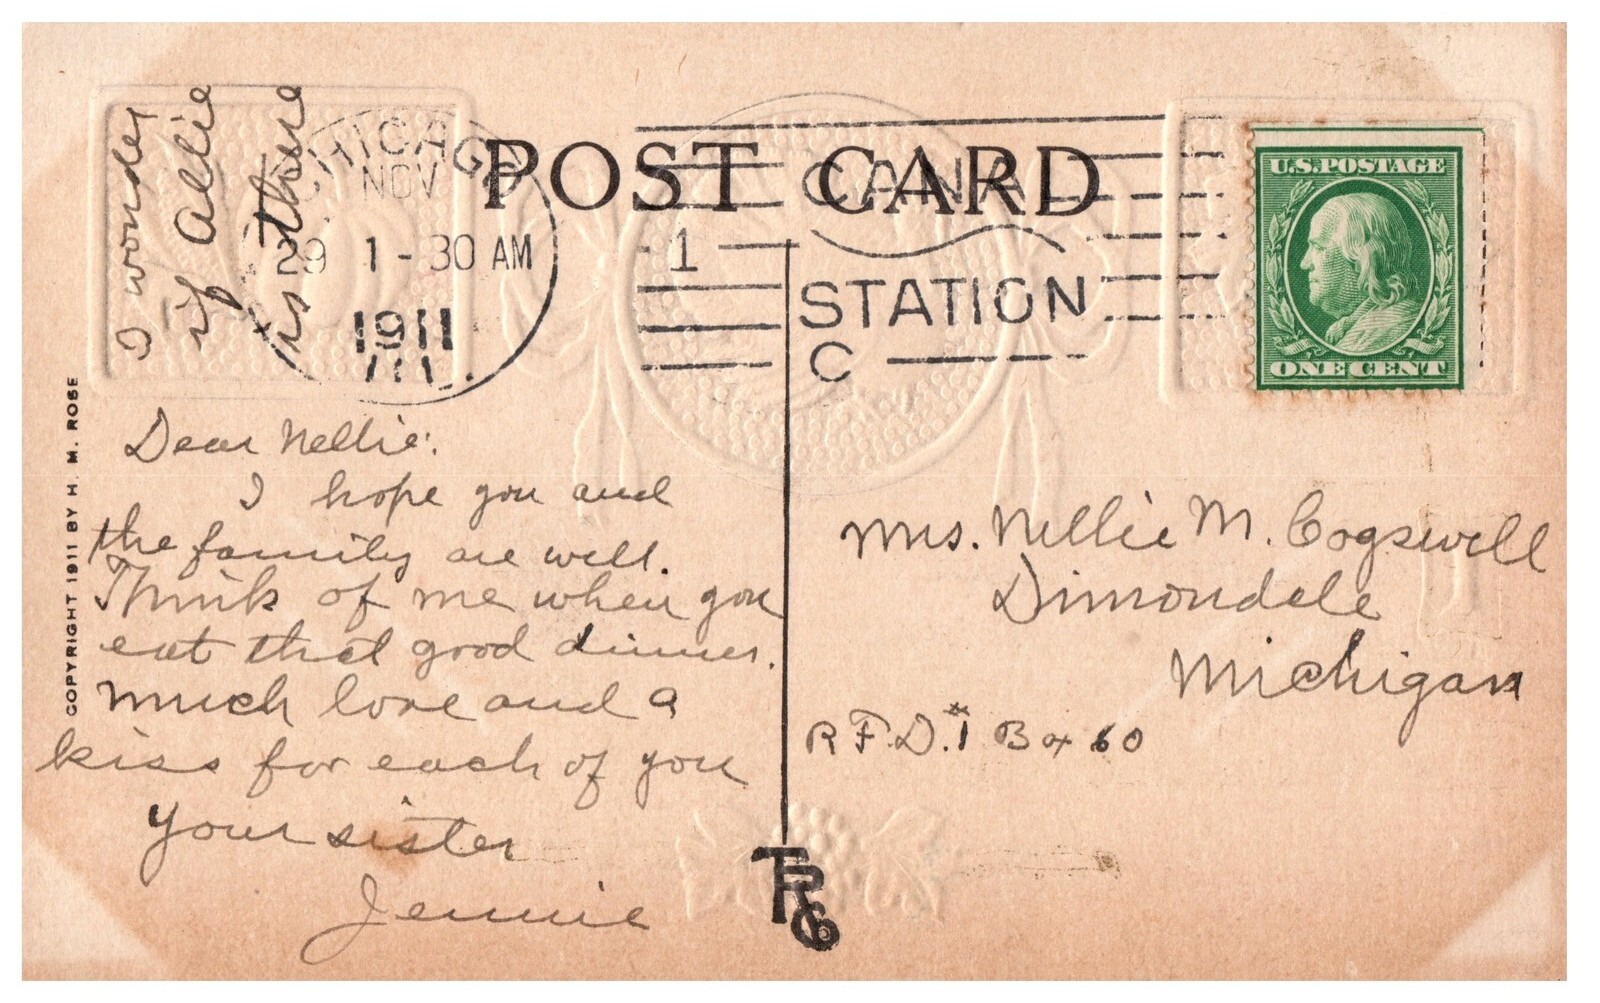 POST CARD
CHICAGO
NOV
29 1-30 AM
1911
ILL.
1
CANAL
STATION
C
U.S. POSTAGE
ONE CENT
I wonder
if Allie
is there
COPYRIGHT 1911 BY H. M. ROSE
Dear Nellie:
I hope you and
the family are well.
Think of me when you
eat that good dinner.
Much love and a
kiss for each of you
Your sister
Jennie
Mrs. Nellie M. Cogswell
Dimondale
Michigan
R.F.D. #1 Box 60
TR Co